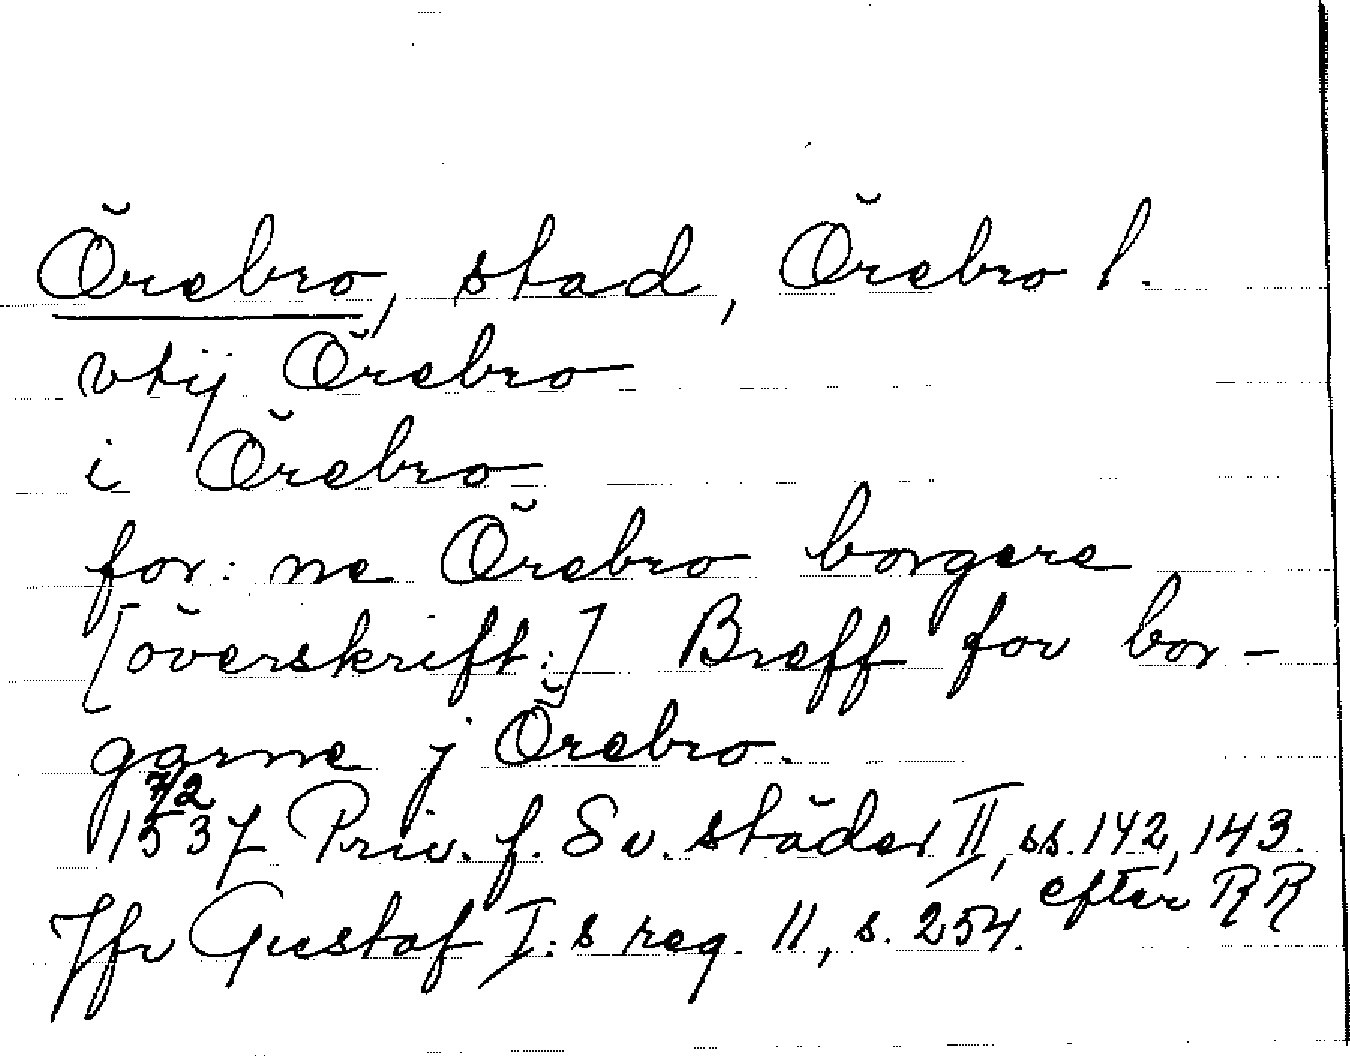 Örebro, stad, Örebro l.
vtij Örebro
i Örebro
for: ne Örebro borgere
[överskrift:] Breff for bor-
garne j Örebro.
7/2
1537 Priv. f. Sv. städer II, ss. 142, 143.
efter RR
Jfr Gustaf I:s reg. 11, s. 254.